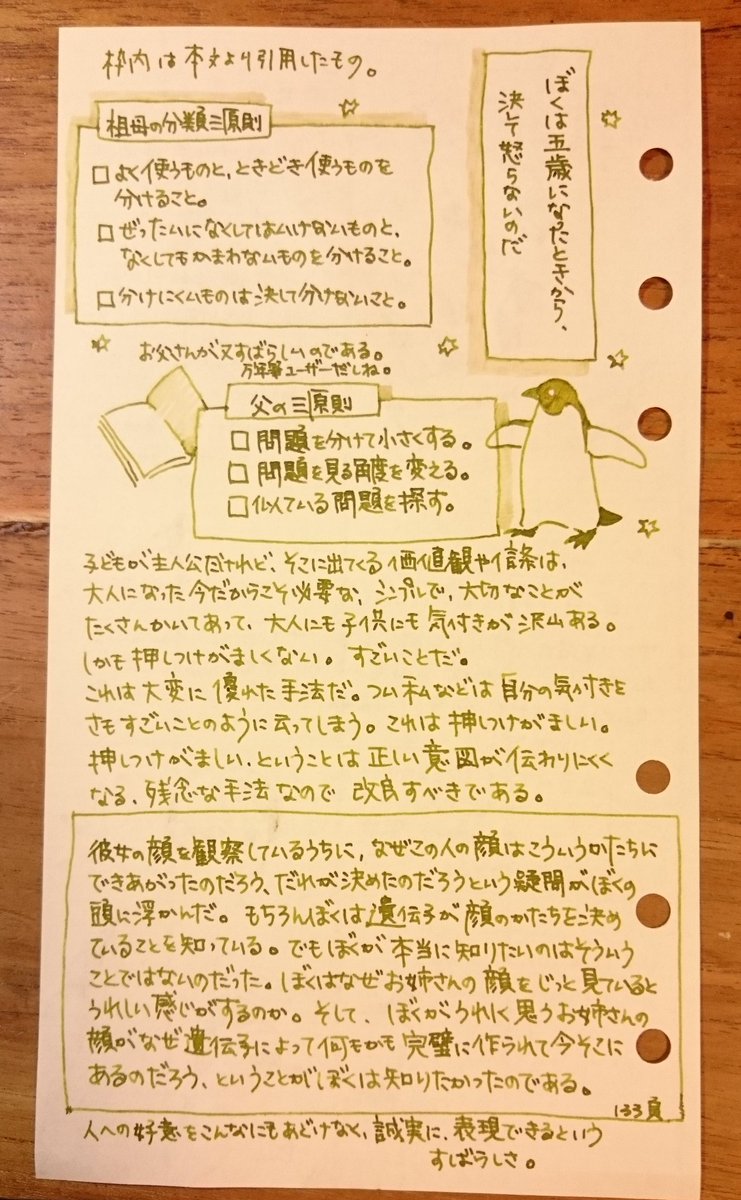 枠内は本文より引用したもの。
ぼくは五歳になったときから、
決して怒らないのだ
祖母の分類三原則
□よく使うものと、ときどき使うものを
分けること。
□ぜったいになくしてはいけないものと、
なくしてもかまわないものを分けること。
□分けにくいものは決して分けないこと。
お父さんが又すばらしいのである。
万年筆ユーザーだしね。
父の三原則
□問題を分けて小さくする。
□問題を見る角度を変える。
□似ている問題を探す。
子どもが主人公だけれど、そこに出てくる価値観や信条は、
大人になった今だからこそ必要な、シンプルで、大切なことが
たくさんかいてあって、大人にも子供にも気付きが沢山ある。
しかも押しつけがましくない。すごいことだ。
これは大変に優れた手法だ。つい私などは自分の気付きを
さもすごいことのように云ってしまう。これは押しつけがましい。
押しつけがましい、ということは正しい意図が伝わりにくく
なる、残念な手法なので改良すべきである。
彼女の顔を観察しているうちに、なぜこの人の顔はこういうかたちに
できあがったのだろう、だれが決めたのだろうという疑問がぼくの
頭に浮かんだ。もちろんぼくは遺伝子が顔のかたちを決め
ていることを知っている。でもぼくが本当に知りたいのはそういう
ことではないのだった。ぼくはなぜお姉さんの顔をじっと見ていると
うれしい感じがするのか。そして、ぼくがうれしく思うお姉さんの
顔がなぜ遺伝子によって何もかも完璧に作られて今そこに
あるのだろう、ということがぼくは知りたかったのである。
133頁
人への好意をこんなにもあどけなく、誠実に、表現できるという
すばらしさ。